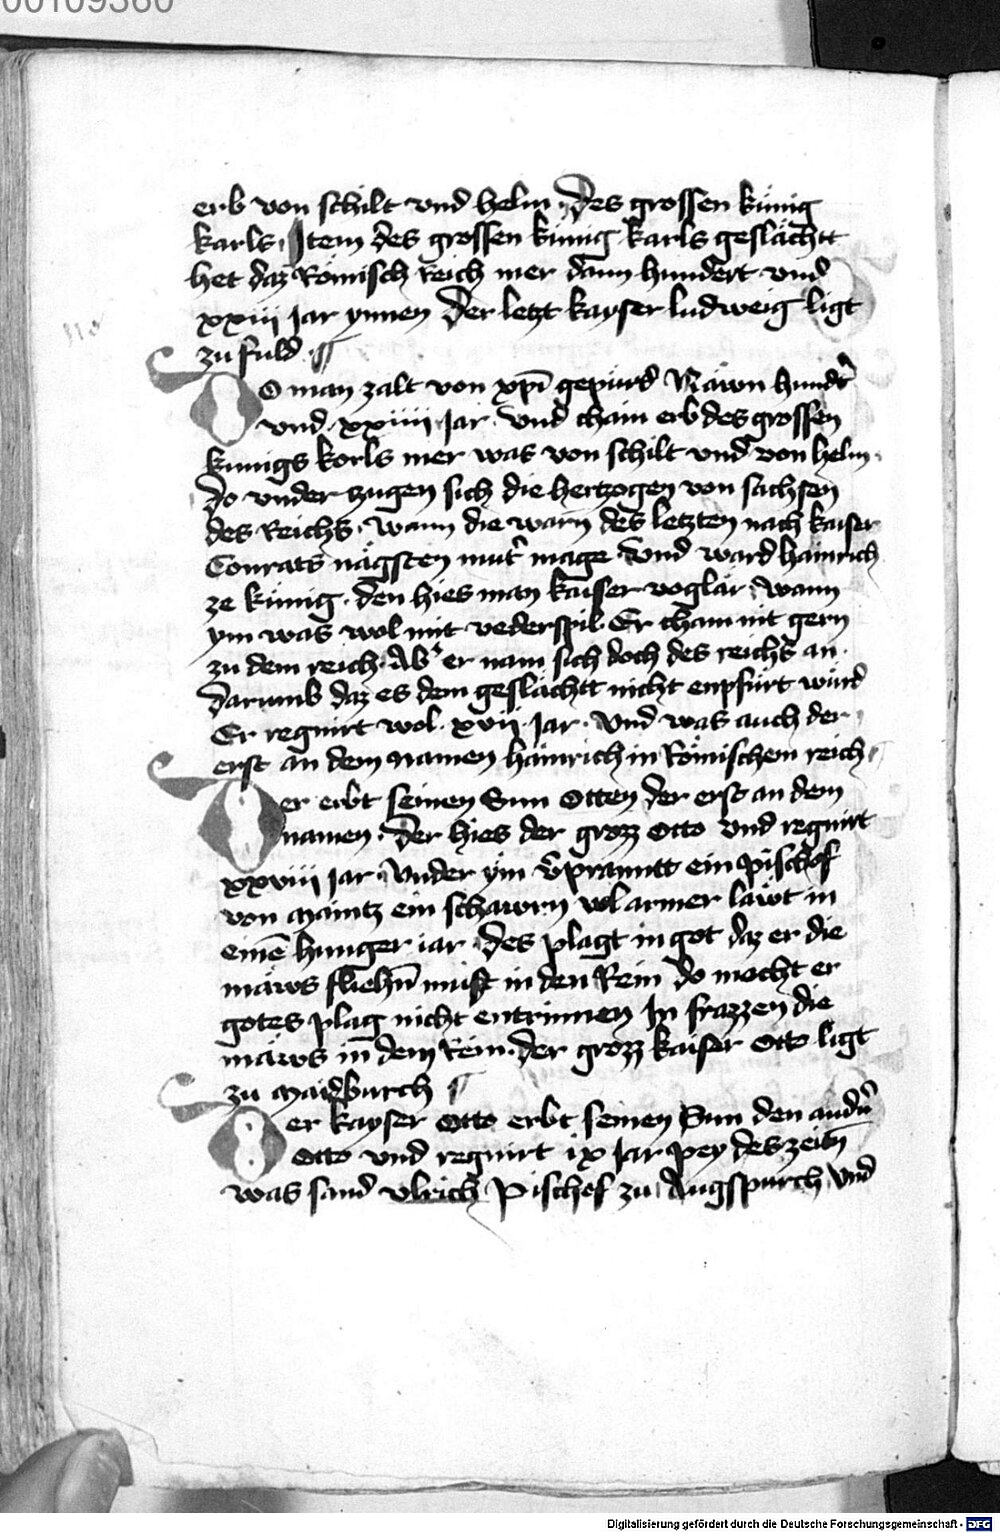 00109380
erb von schilt vnd helm · Des grossen künig
karls · Item des grossen künig karls geslächtt
het daz Römisch Reich mer dann hundert vnd
xxiii Jar ynnen Der letzt kayser ludweig ligt
zu fuld ·
DO man zalt von xpī gepürd Näwn hundt̄
vnd · xxiiii Jar · Vnd chain erb des grossen
künigs korls mer was von schilt vnd von helm ·
Do vnder zugen sich die hertzogen von sachsen
des Reichs · Wann die warn des letzten nach kaiser
Conrats nägsten mut̄ mage · Vnd ward hainrich
ze künig · den hies man kaiser voglär · Wann
ym was wol mit vederspil · Er cham nit gern
zu dem reich · Ab̄ er nam sich doch des reichs an ·
Darumb daz es dem geslächtt nicht enpfürt würd
Er regnirt wol · xvii · Jar · Vnd was auch der
erst an dem namen hainrich in Römischem reich ·
Der erbt seinen Sun Otten der erst an dem
namen · Der hies der grozz Otto vnd regnirt
xxviii Jar · Vnder ym v̄pranntt ein Pischof
von Maintz ein schawrn vol armer läwt in
einē hunger iar · Des plagt in got daz er die
mäws fliehn̄ müst in den Rein do mocht er
gotes plag nicht entrinnen In frazzen die
mäws in dem Rein · der grozz kaiser Otto ligt
zu Maidburch
Der kayser Otto erbt seinen Sun den andn̄
Otto vnd regnirt ix Jar Pey des zeitn̄
was sand Vlreich Pischof zu Augspurch Vnd
Digitalisierung gefördert durch die Deutsche Forschungsgemeinschaft - DFG